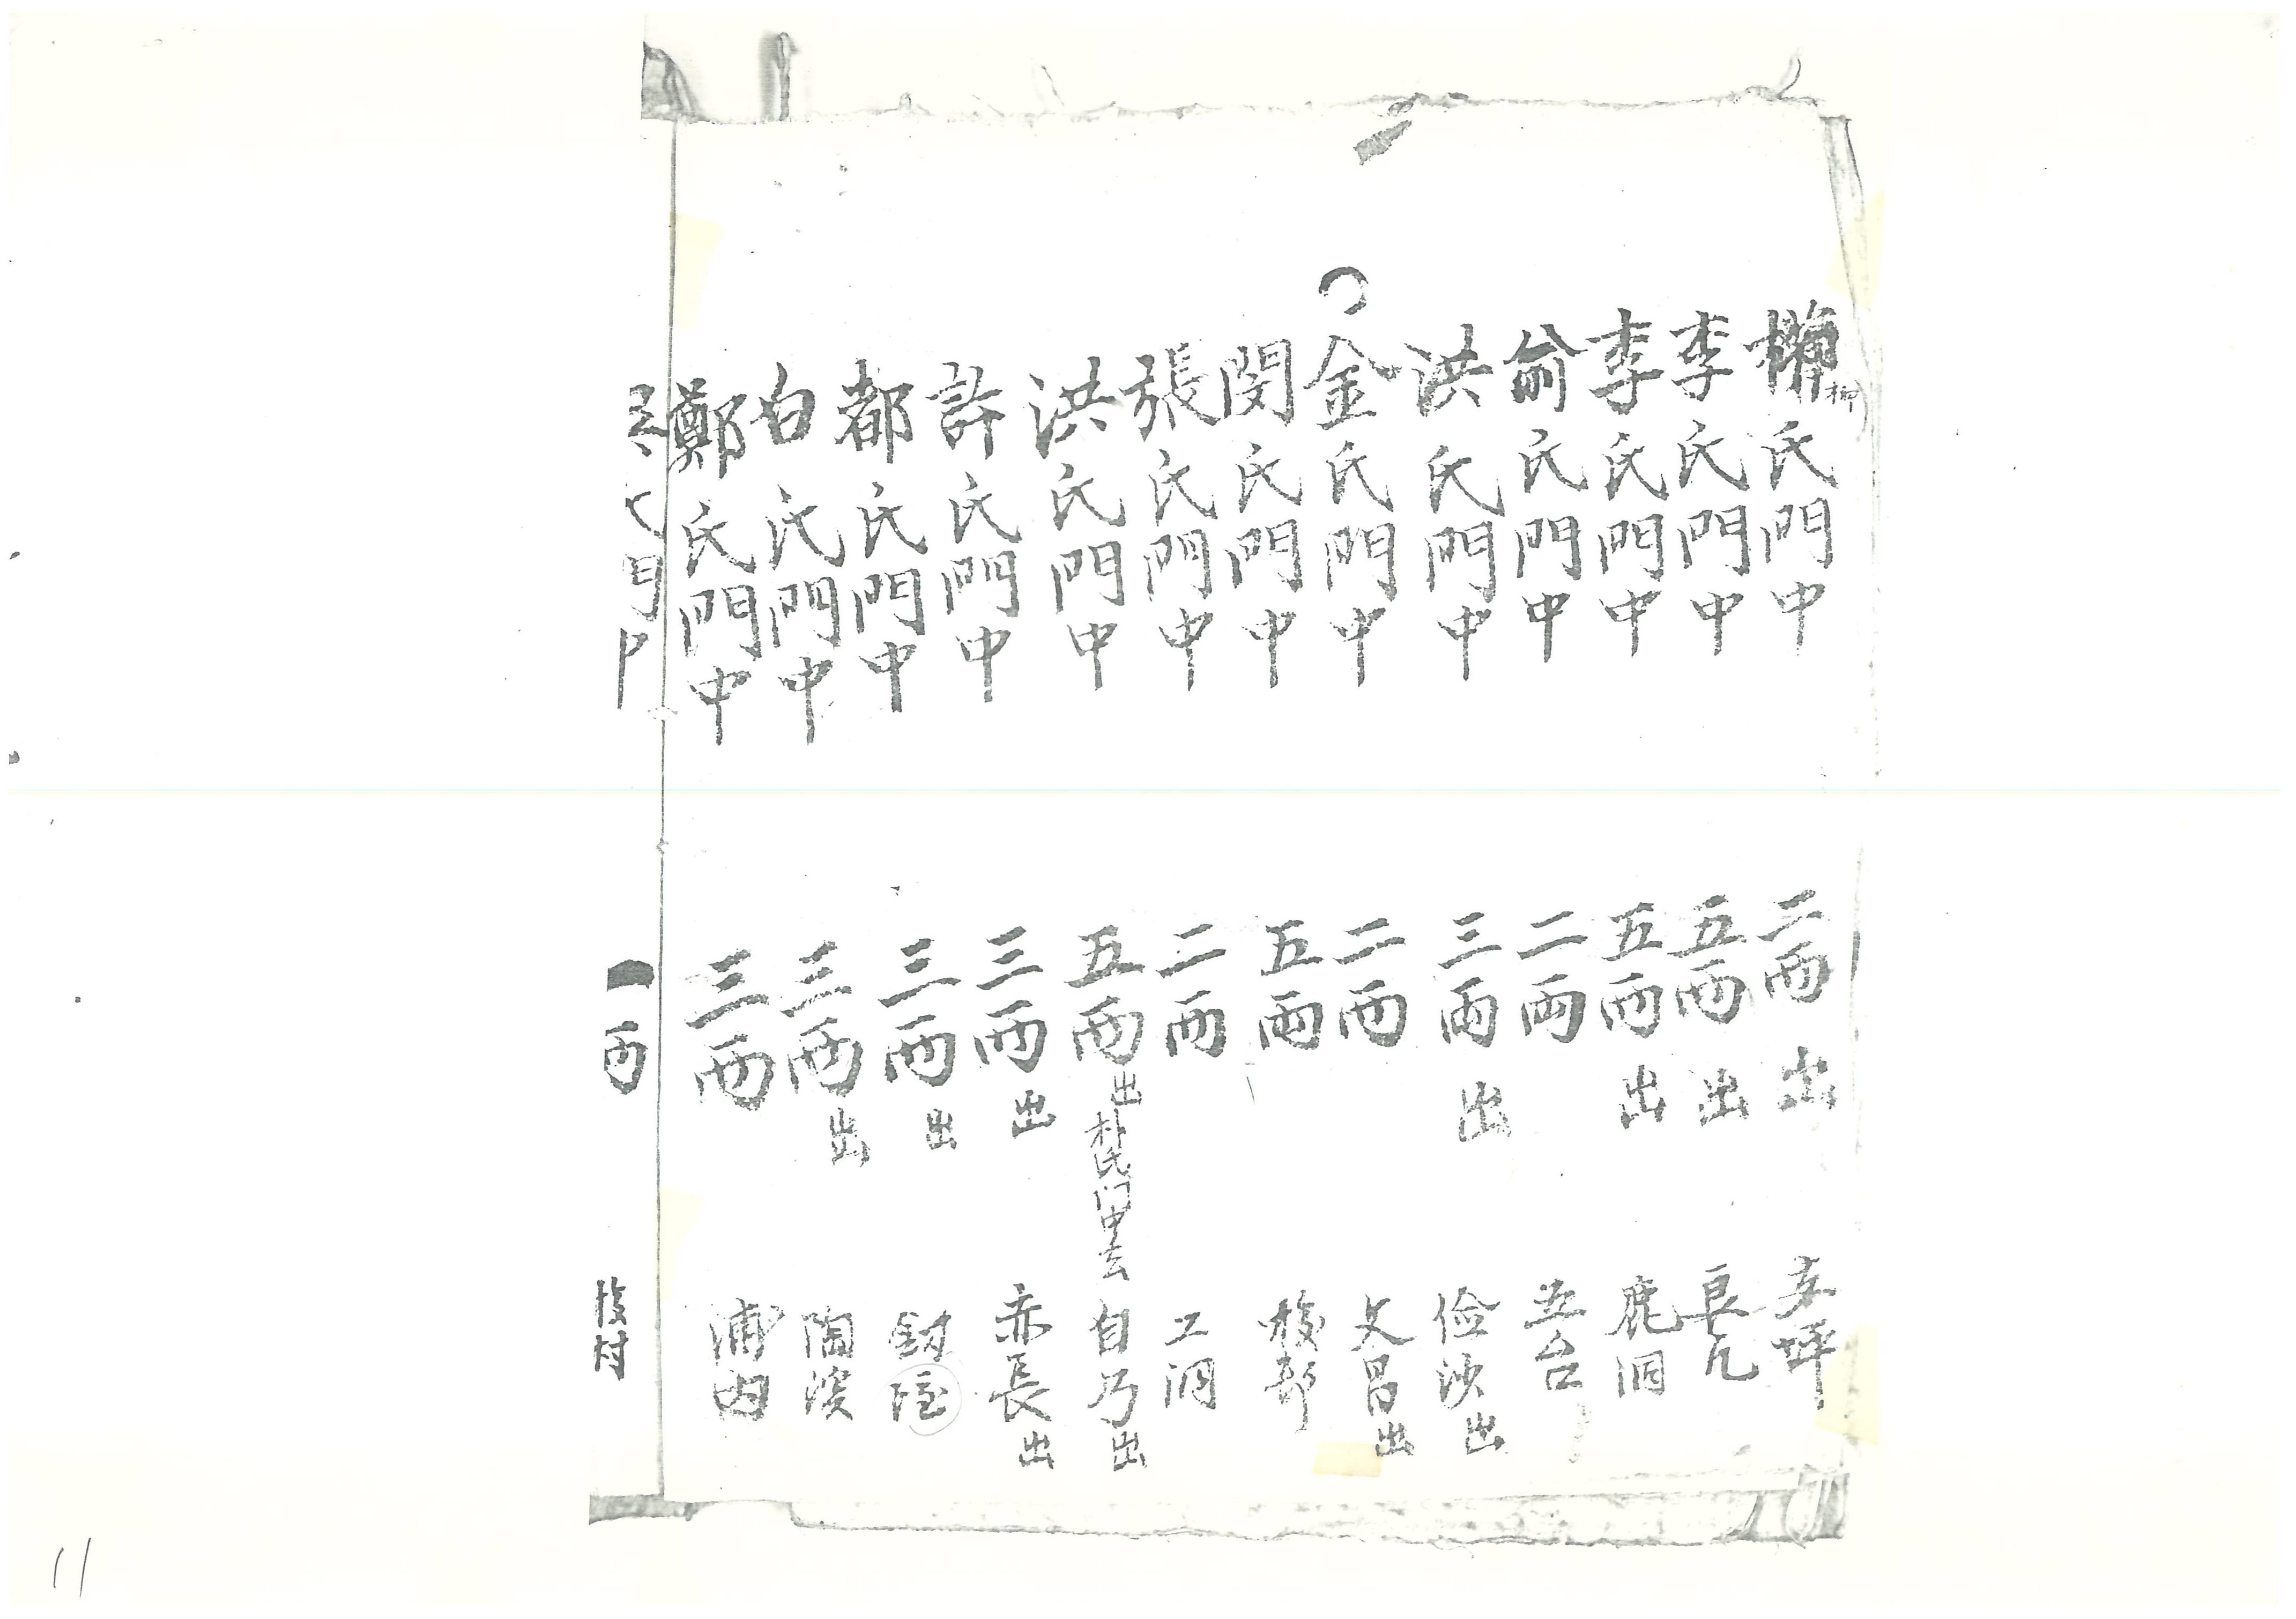 氏門中 二兩 出
李氏門中 五兩 出 良九
李氏門中 五兩 出 鹿洞
兪氏門中 二兩 五台
洪氏門中 三兩 出 儉沙 出
金氏門中 二兩 文昌 出
閔氏門中 五兩
張氏門中 二兩 工洞
洪氏門中 五兩 出 朴氏门中云 自乃 出
許氏門中 三兩 出 赤長 出
都氏門中 三兩 出
白氏門中 三兩 出 陶溪
鄭氏門中 三兩 浦內
一兩
11